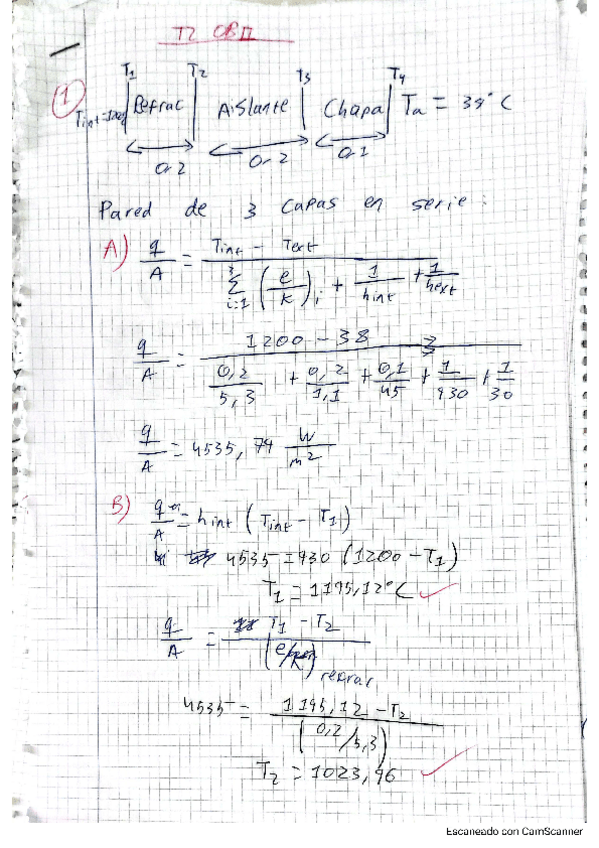 T2 OBII
1
T1 T2 T3 T4
Tint=1200 Refrac Aislante Chapa Ta = 38°C
0,2 0,2 0,1
Pared de 3 capas en serie:
A) q/A = Tint - Text / ∑ i=1 3 (e/k)i + 1/hint + 1/hext
q/A = 1200 - 38 / 0,2/5,3 + 0,2/1,1 + 0,1/45 + 1/930 + 1/30
q/A = 4535,74 W/m²
B) q/A = hint (Tint - T1)
4535 = 930 (1200 - T1)
T1 = 1195,12°C ✓
q/A = T1 - T2 / (e/k) refrac
4535 = 1195,12 - T2 / (0,2/5,3)
T2 = 1023,96 ✓
Escaneado con CamScanner